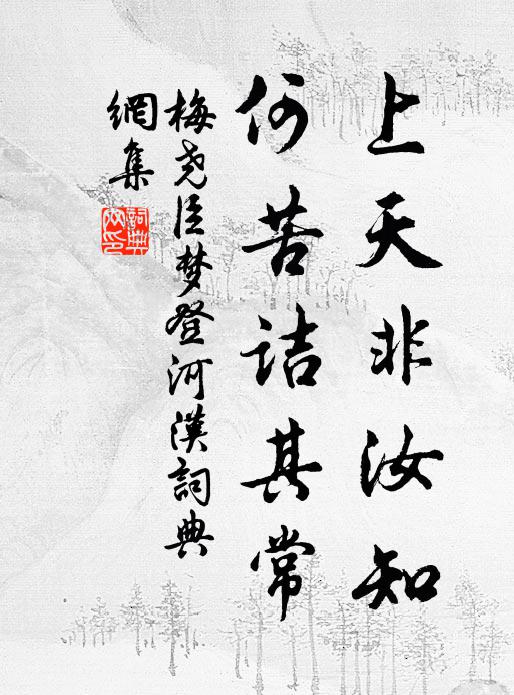 上天非汝知
何苦诘其常
梅尧臣梦登河汉词典
網集
詞典
网印